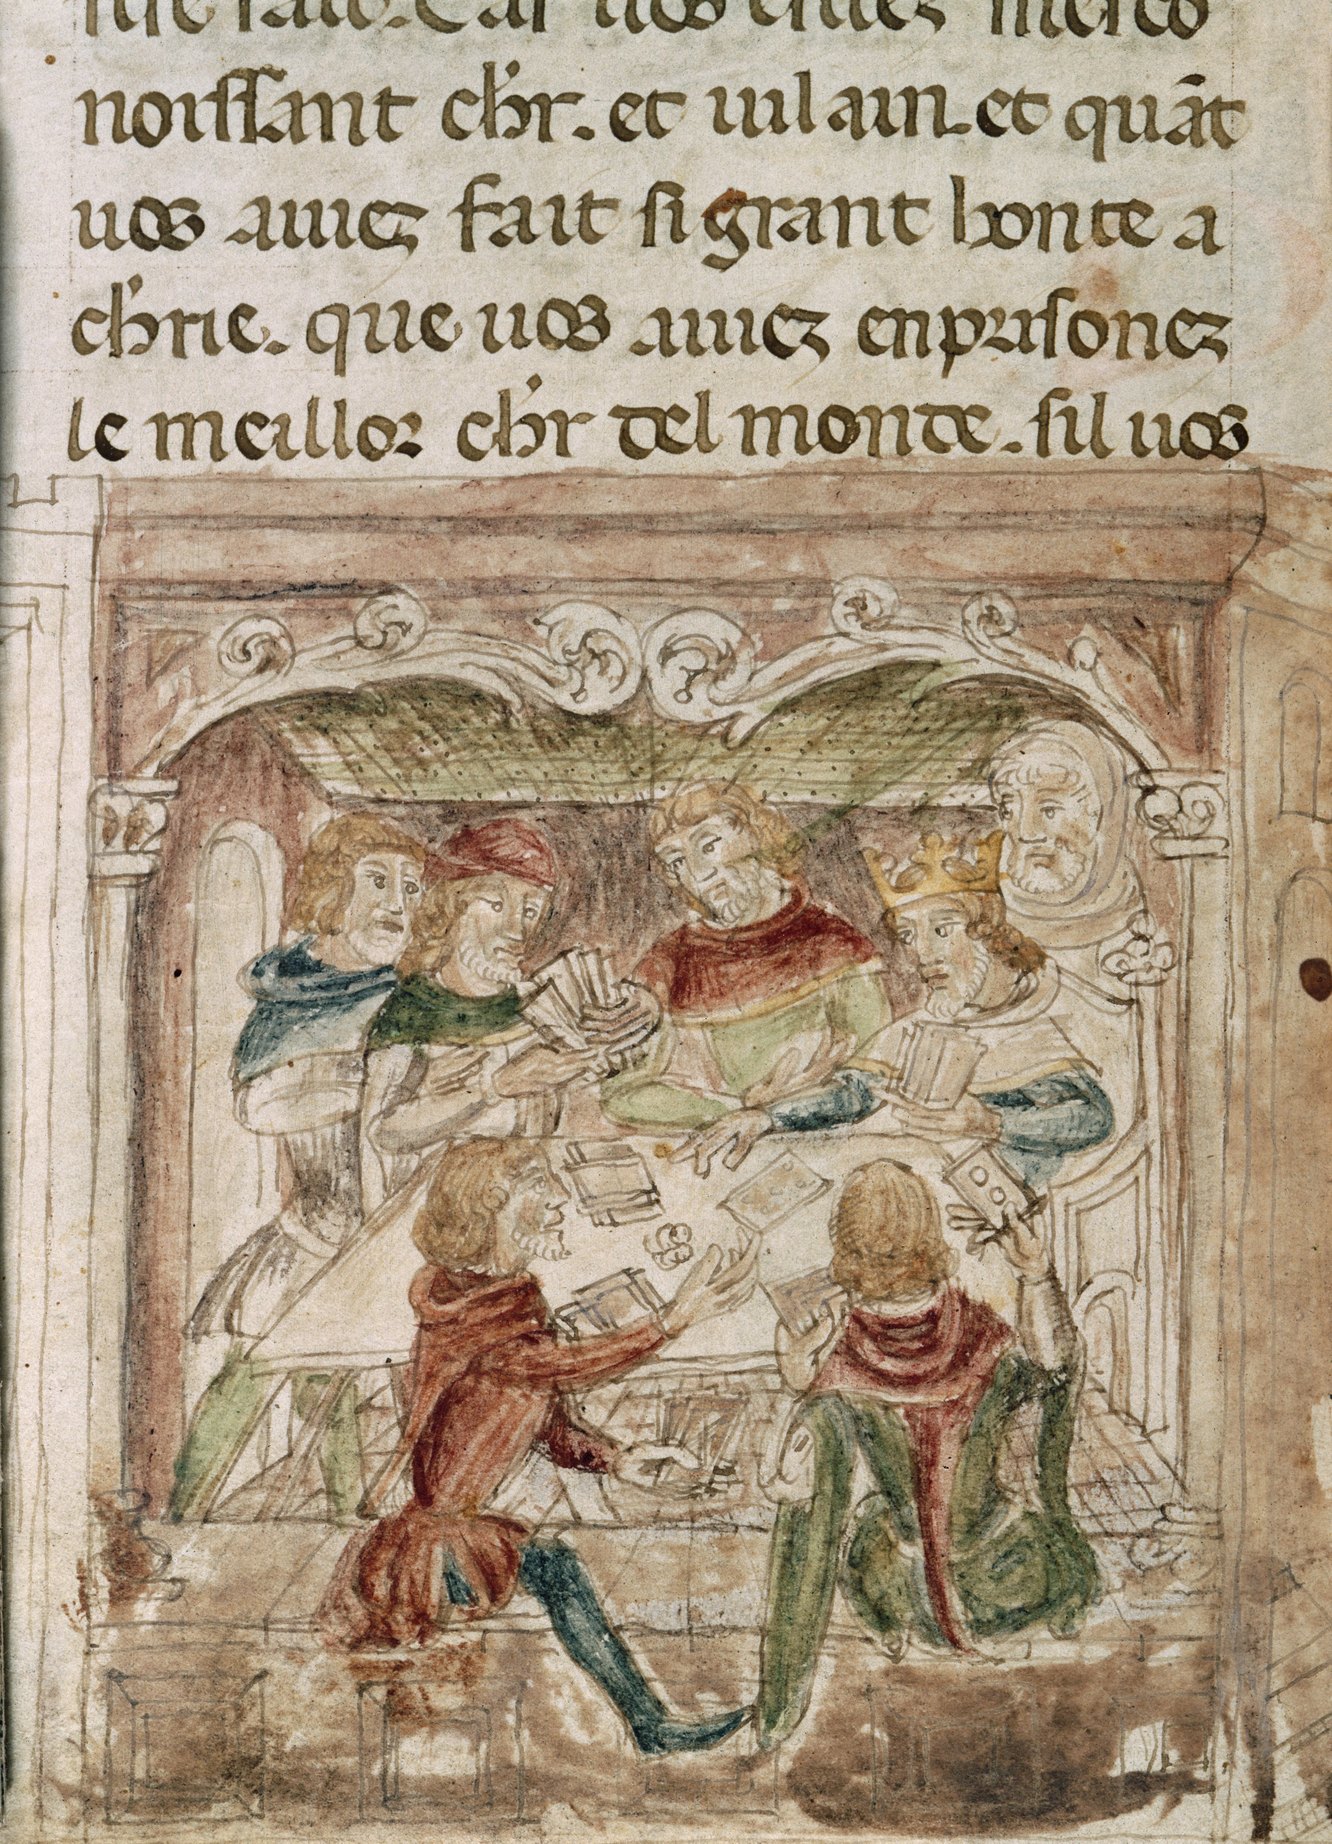 Car uos estiez mesco
noissant ch'r. et uilain. et quāt
uos auiez fait si grant bonte a
ch'rie. que uos auiez enprisonez
le meillor ch'r del monde. sil uos